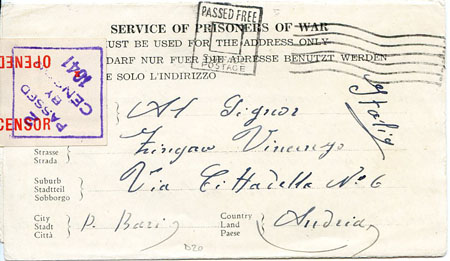 PASSED FREE
POSTAGE
SERVICE OF PRISONERS OF WAR
UST BE USED FOR THE ADDRESS ONLY
DARF NUR FUER DIE ADRESSE BENUTZT WERDEN
E SOLO L'INDIRIZZO
OPENED
CENSOR
PASSED
BY
CEN
1041
Italia
Al Signor
Strasse
Strada
Vincenzo
Suburb
Stadtteil
Sobborgo
Via Cittadella No 6
City
Stadt
Città
P. Bari
Country
Land
Paese
Andria
D20